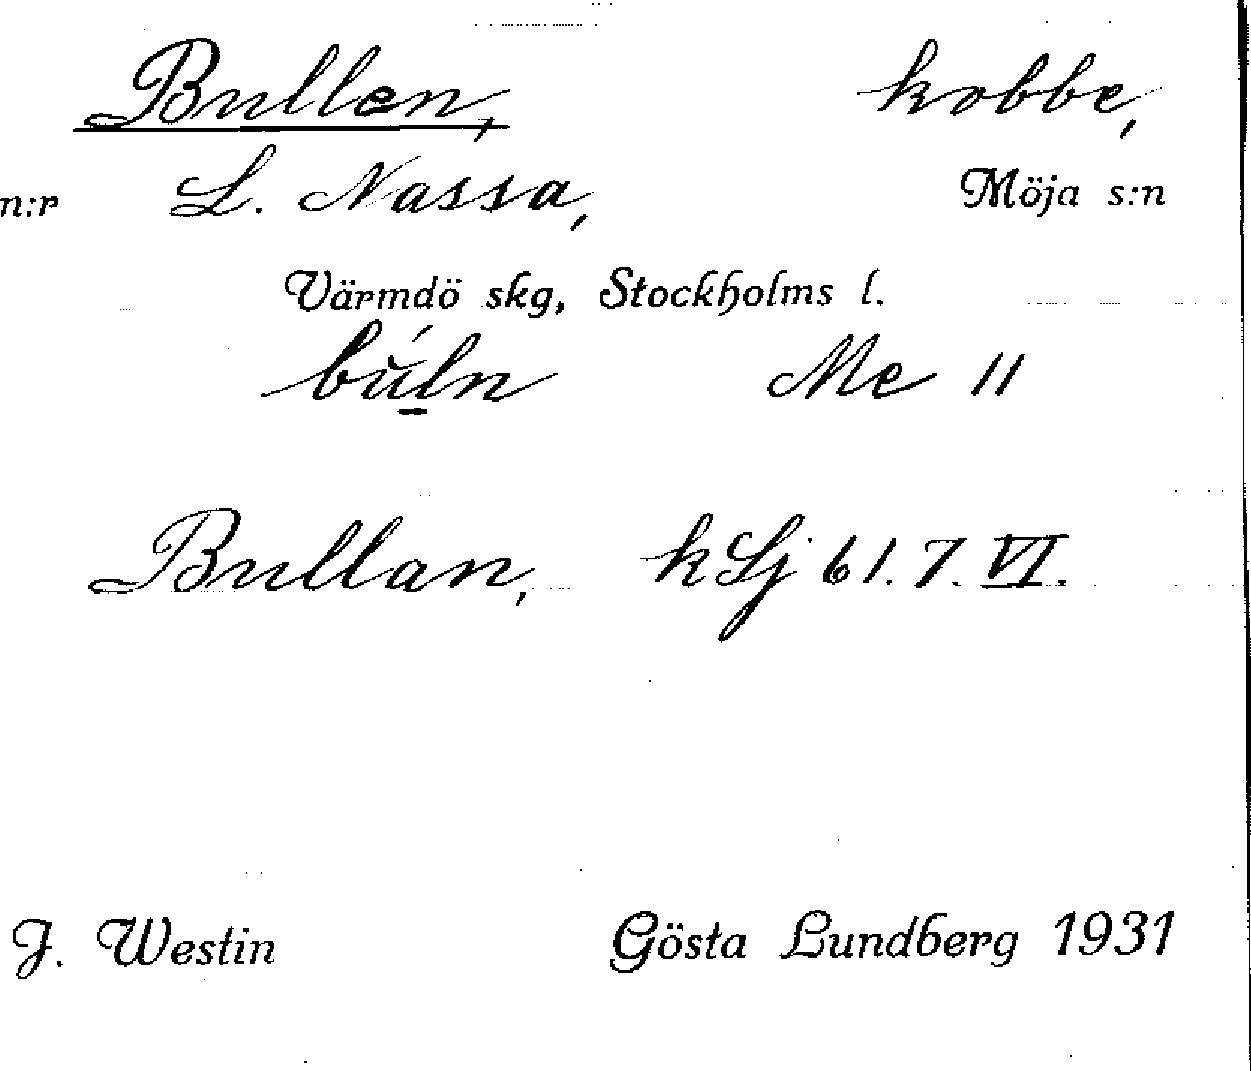 Bullen, kobbe,
n:r L. Nassa, Möja s:n
Värmdö skg, Stockholms l.
Me 11
Bullan, k Sj 61. 7. VI.
J. Westin Gösta Lundberg 1931